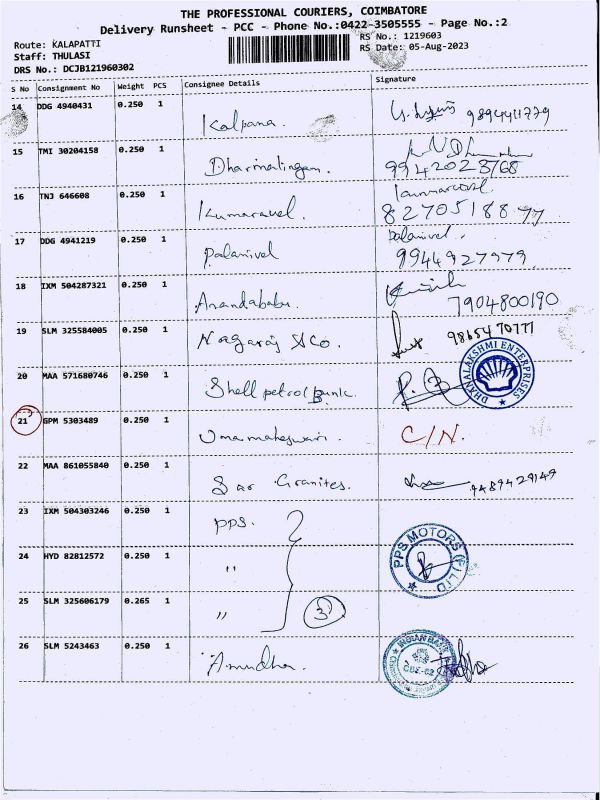 THE PROFESSIONAL COURIERS, COIMBATORE
Delivery Runsheet - PCC - Phone No.:0422-3505555 - Page No.:2
Route: KALAPATTI
RS No.: 1219603
Staff: THULASI
RS Date: 05-Aug-2023
DRS No.: DCJB121960302
S No Consignment No Weight PCS Consignee Details Signature
14 DDG 4940431 0.250 1 Kalpana. 9894411779
15 TMI 30204158 0.250 1 Dharmalingam. 9942023768
16 TNJ 646608 0.250 1 Kumaravel. 8270518877
17 DDG 4941219 0.250 1 Palanivel Palanivel 9944927979
18 IXM 504287321 0.250 1 Anandababu. 7904800190
19 SLM 325584005 0.250 1 Nagaraj & Co. 9865470777
20 MAA 571680746 0.250 1 Shell petrol Bunk. DHANALAKSHMI ENTERPRISES
21 GPM 5303489 0.250 1 Umamaheswari. C/N.
22 MAA 861055840 0.250 1 Sar Granites. 9489429149
23 IXM 504303246 0.250 1 PPS.
24 HYD 82812572 0.250 1 " PPS MOTORS (P) LTD
25 SLM 325606179 0.265 1 " 3
26 SLM 5243463 0.250 1 Amudha. INDIAN BANK